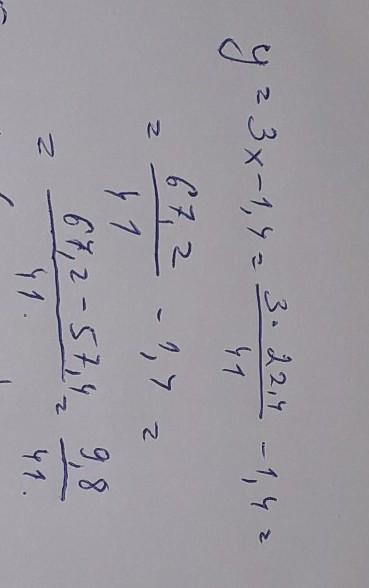 y = 3x - 1,4 = \frac{3 \cdot 22,4}{41} - 1,4 =
= \frac{67,2}{41} - 1,4 =
= \frac{67,2 - 57,4}{41} = \frac{9,8}{41}.